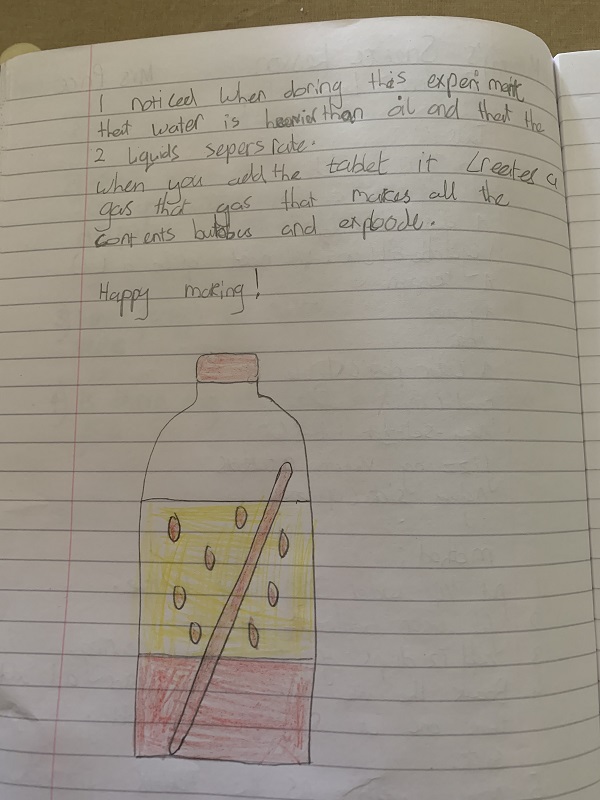 I noticed when doring this experiment
that water is heavier than oil and that the
2 liquids sepersrate.
when you add the tablet it creates a
gas that gas that makes all the
contents and explode.

Happy making!